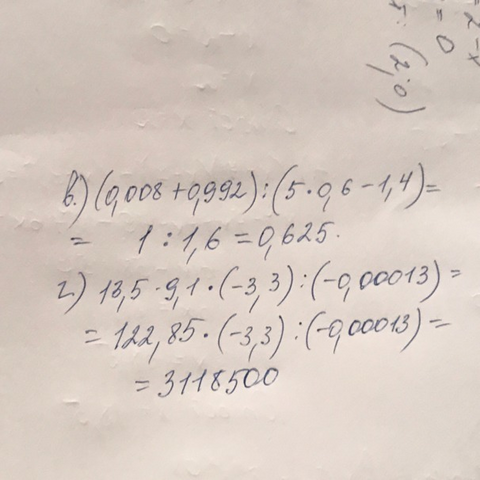 = 2 - x
= 0
: (2;0)
в.) (0,008 + 0,992) : (5 · 0,6 - 1,4) =
= 1 : 1,6 = 0,625.
г) 13,5 · 9,1 · (-3,3) : (-0,00013) =
= 122,85 · (-3,3) : (-0,00013) =
= 3118500